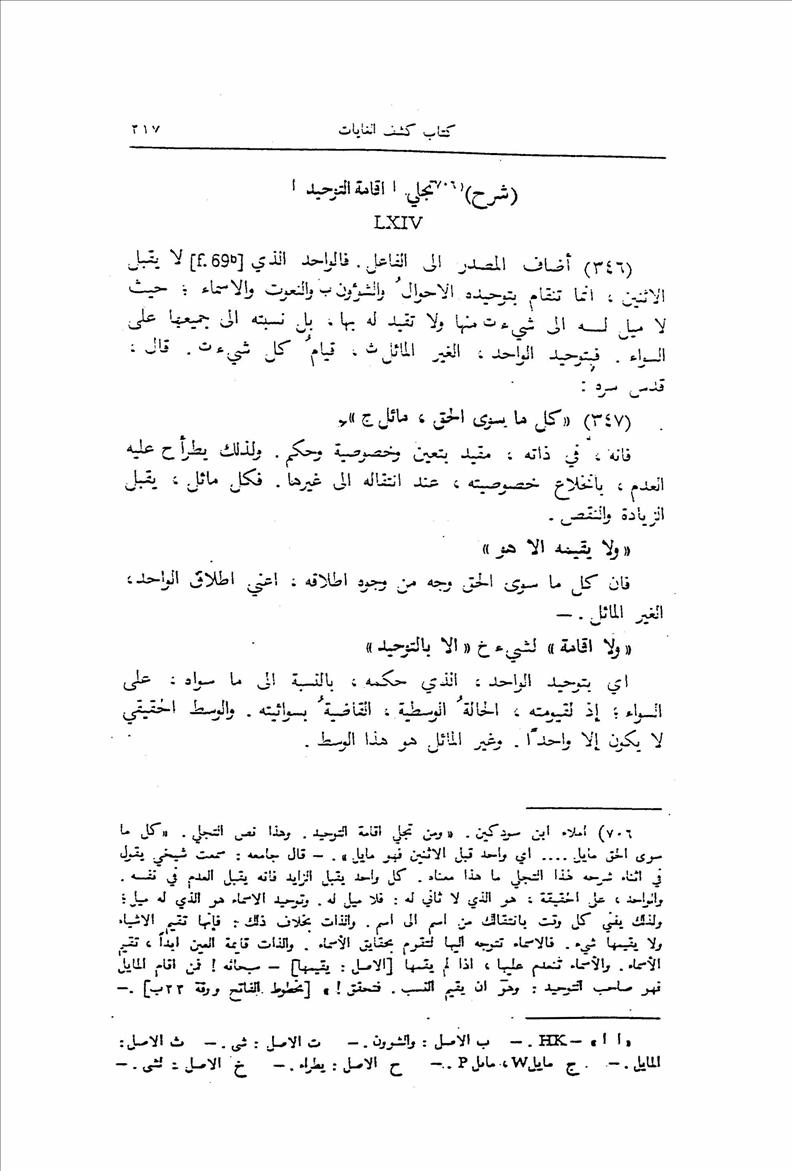 ٢١٧ كتاب كشف الغايات
(شرح) ٧٠٦) تجلي ا اقامة التوحيد ا
LXIV
(٣٤٦) أضاف المصدر الى الفاعل . فالواحد الذي [f. 69b] لا يقبل
الاثنين ، انما تنقام بتوحيده الاحوالُ والشؤون ب والنعوت والاسماء ؛ حيث
لا ميل لـه الى شيء ت منها ولا تقيد له بها ، بل نسبته الى جميعها على
السواء . فبتوحيد الواحد ، الغير المائل ث ، قيامُ كل شيء ت . قال ،
قدس سره :
(٣٤٧) «كل ما يسوى الحق ، مائل ج» .
فانه ، في ذاته ، مقيد بتعين وخصوصية وحكم . ولذلك يطرأ ح عليه
العدم ، بانخلاع خصوصيته ، عند انتقاله الى غيرها . فكل مائل ، يقبل
الزيادة والنقص .
«ولا يقيمه الا هو»
فان كل ما سوى الحق وجه من وجوه اطلاقه ، اعني اطلاق الواحد ،
الغير المائل . —
«ولا اقامة» لشيء خ «الا بالتوحيد»
اي بتوحيد الواحد ، الذي حكمه ، بالنسبة الى ما سواه ، على
السواء ؛ إذ لقيومته ، الحالةُ الوسطية ، القاضيةُ بسوائيته . والوسط الحقيقي
لا يكون إلا واحدًا . وغير المائل هو هذا الوسط .
٧٠٦) املاء ابن سودكين . «ومن تجلي اقامة التوحيد . وهذا نص التجلي . «كل ما
سوى الحق مايل .... اي واحد قبل الاثنين فهو مايل» . — قال جامعه : سمعت شيخي يقول
في اثناء شرحه لهذا التجلي ما هذا معناه . كل واحد يقبل الزايد فانه يقبل العدم في نفسه .
والواحد ، على الحقيقة ، هو الذي لا ثاني له : فلا ميل له . وتوحيد الاسماء هو الذي له ميل ؛
ولذلك يفنى كل وقت بانتقالك من اسم الى اسم . والذات بخلاف ذلك : فإنها تقيم الاشياء
ولا يقيمها شيء . فالاسماء تتوجه اليها لتقوم بحقايق الأسماء . والذات قايمة العين ابداً ، تقيم
الأسماء . والأسماء تنعدم عليها ، اذا لم يقمها [الاصل : يقيمها] — سبحانه ! فمن اقام المايل
فهو صاحب التوحيد : وهو ان يقيم النسب . فتحقق !» [مخطوط الفاتح ورقة ٢٣ب] . —
«ا ا» — HK . — ب الاصل : والشرون . — ت الاصل : شى . — ث الاصل :
المايل . — ج مايل W ، مامل P . — ح الاصل : يطراء . — خ الاصل : لشى . —